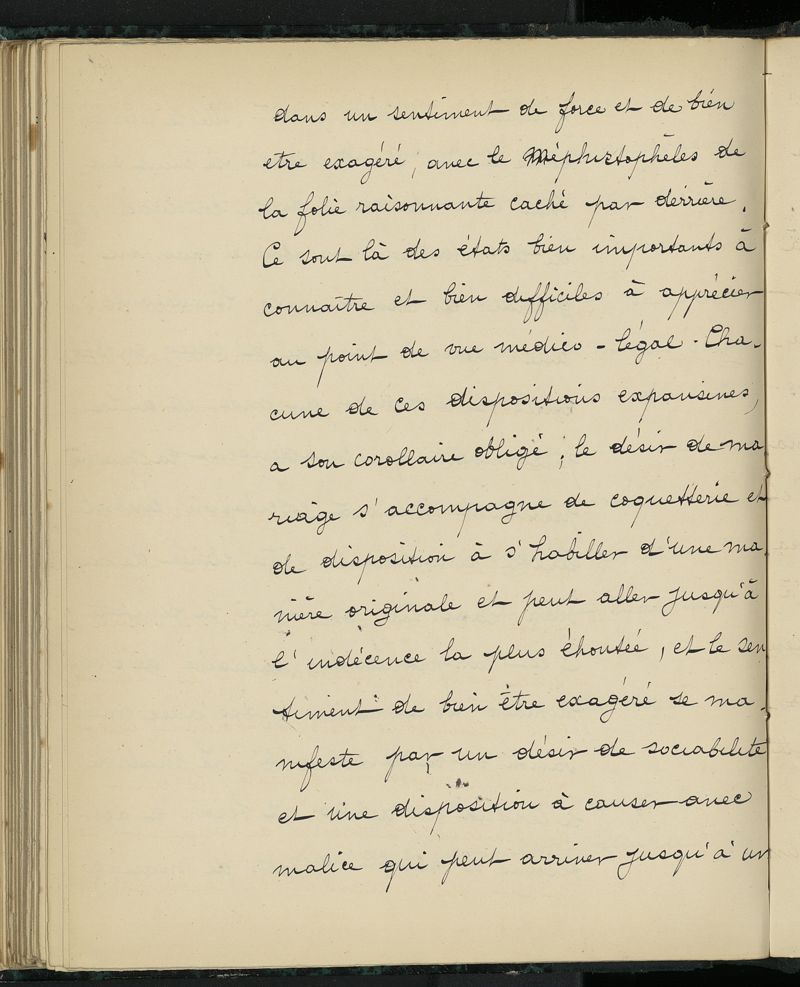 dans un sentiment de force et de bien
etre exagéré, avec le Méphiztophèles de
la folie raisonnante caché par derrière.
Ce sont là des états bien importants à
connaître et bien difficiles à apprécier
au point de vue médico-légal. Cha-
cune de ces dispositions expansives,
a son corollaire obligé; le désir de ma
riage s'accompagne de coquetterie et
de disposition à s'habiller d'une ma
nière originale et peut aller jusqu'à
l'indécence la plus éhontée, et le sen
timent de bien être exagéré se ma-
nifeste par un désir de sociabilité
et une disposition à causer avec
malice qui peut arriver jusqu'à un